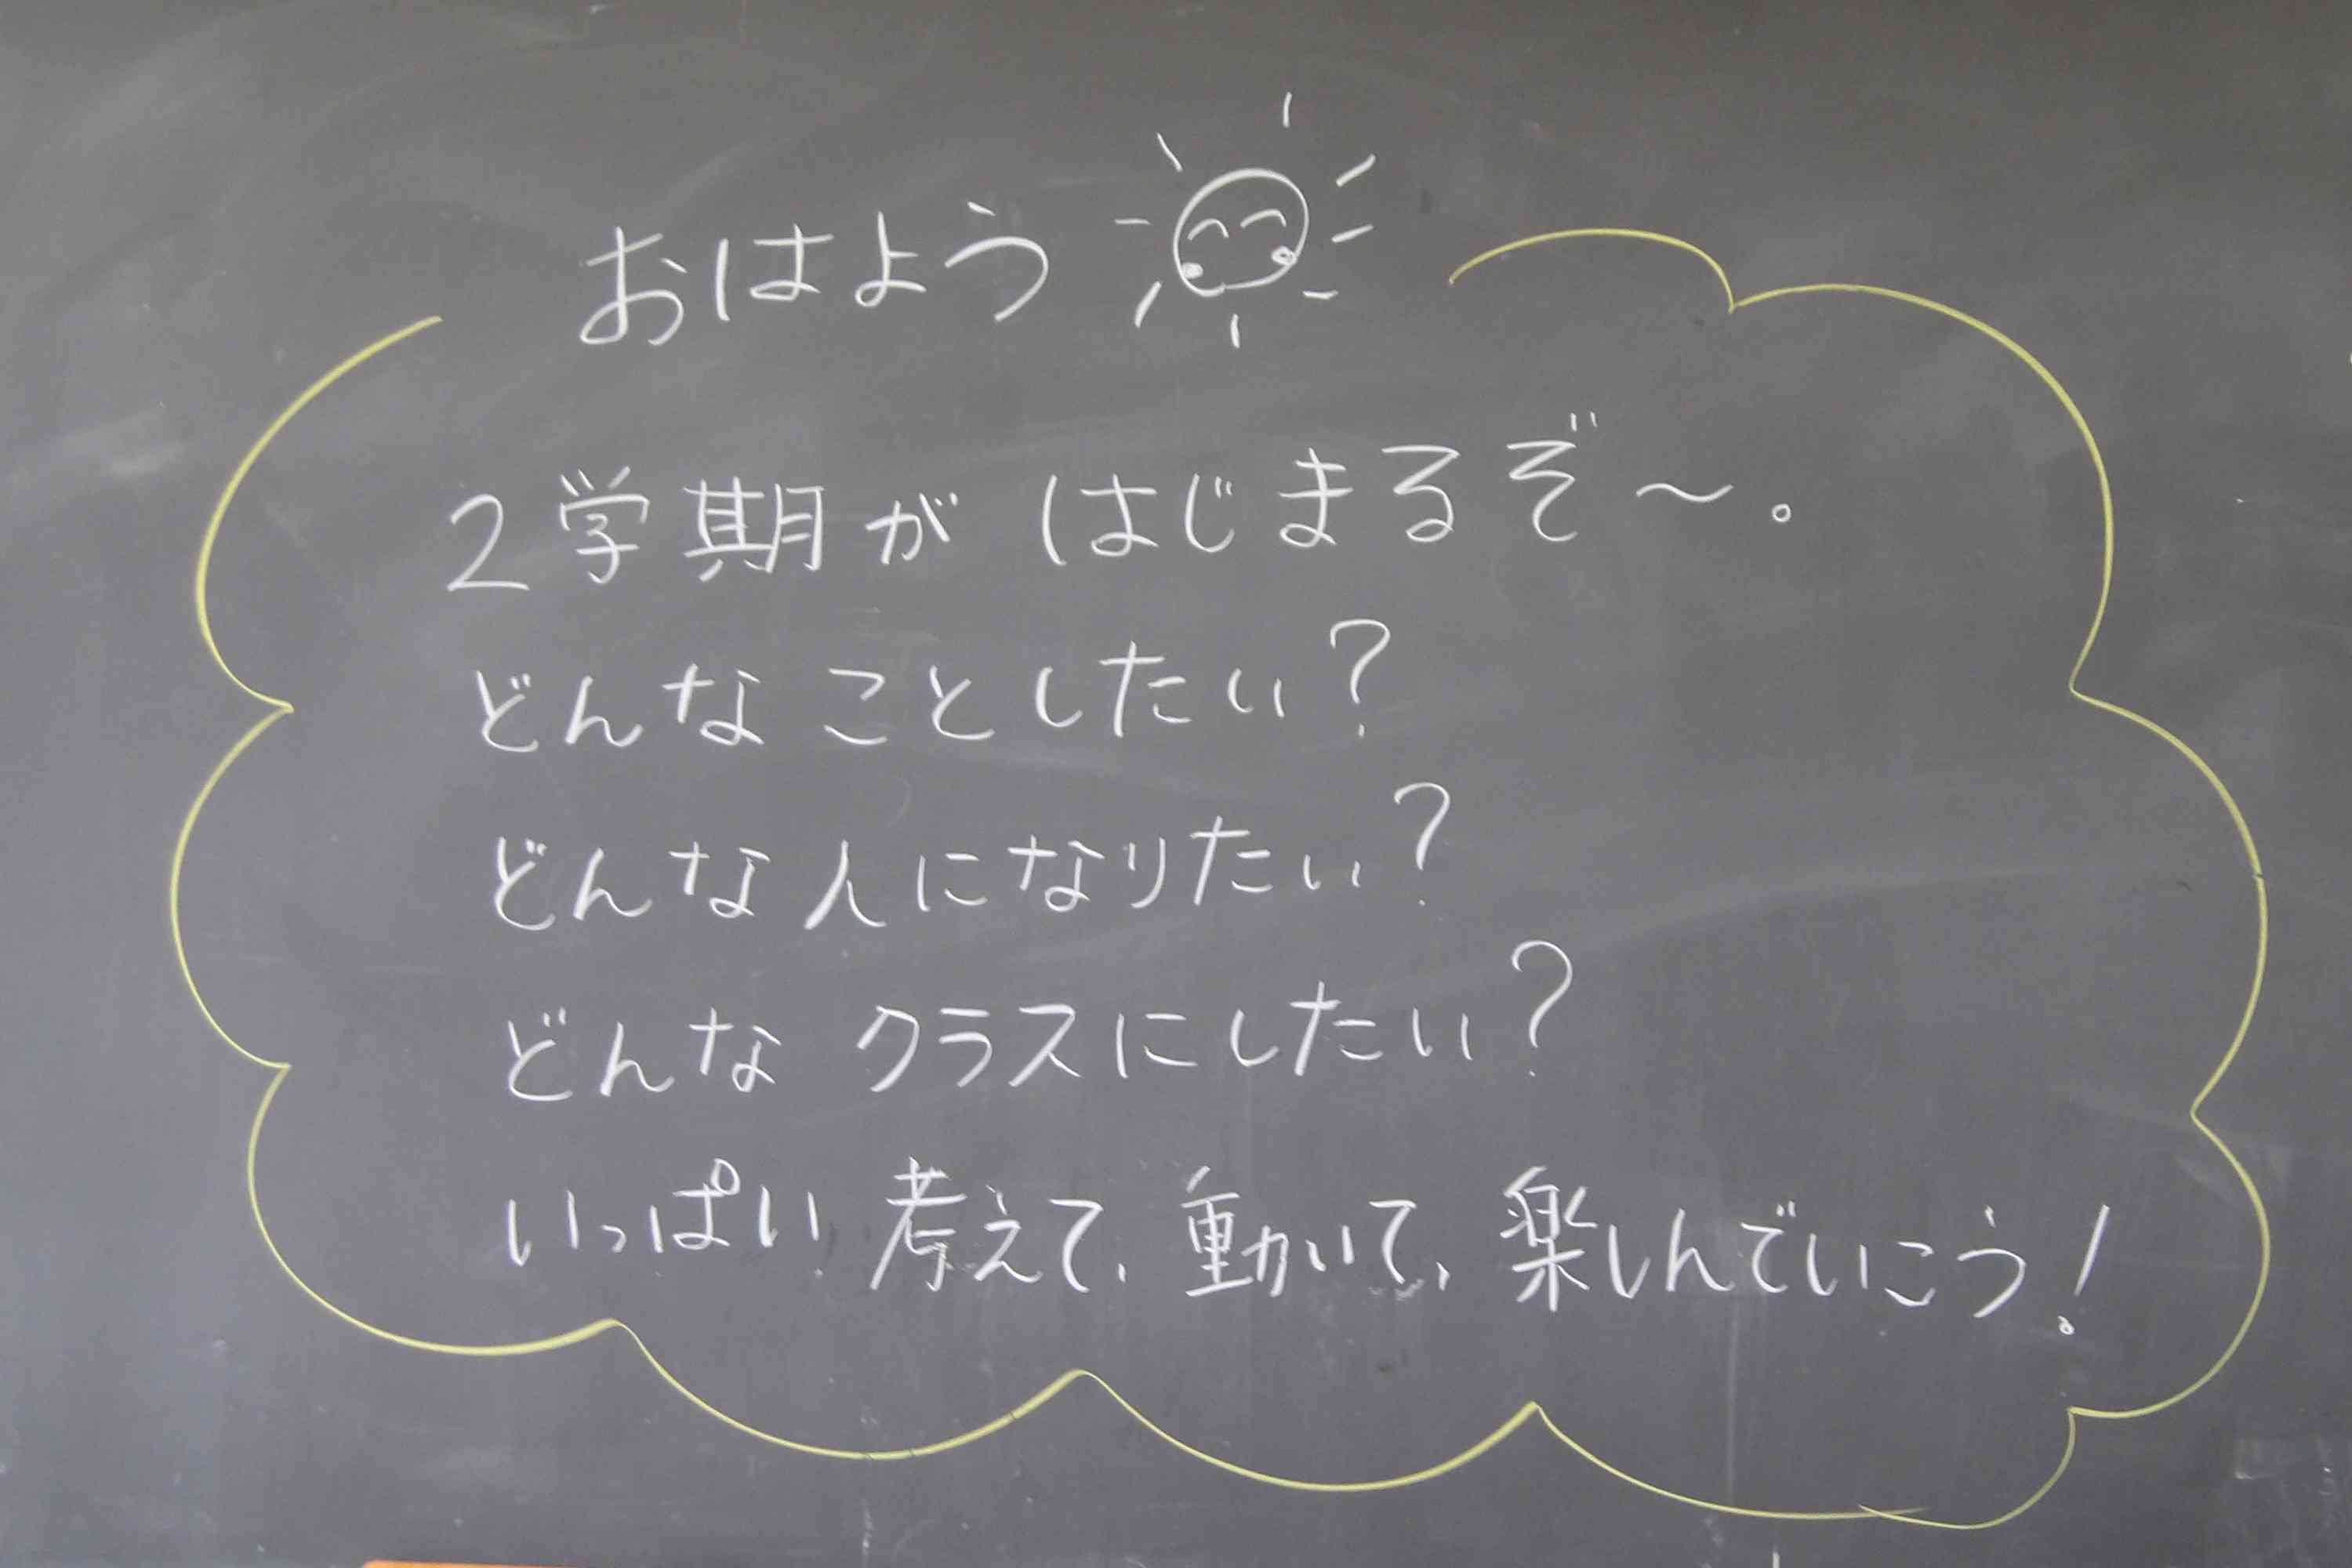 おはよう
2学期が はじまるぞ～。
どんな ことしたい?
どんな人になりたい?
どんな クラスにしたい?
いっぱい 考えて、動いて、楽しんでいこう!